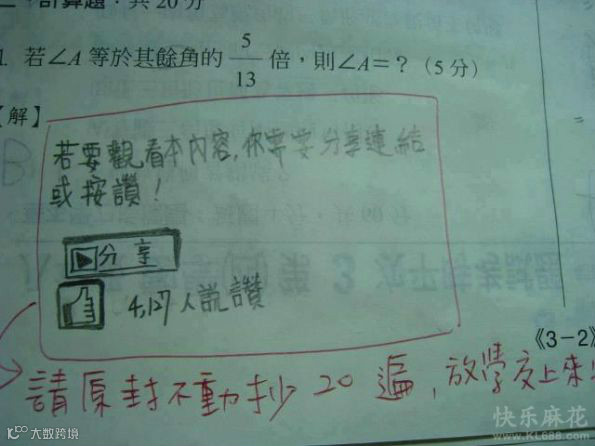 二、計算題：共20分
1. 若∠A 等於其餘角的 5/13 倍，則∠A=？(5分)
【解】
若要觀看本內容,你需要分享連結
或按讚！
分享
4,127人說讚
《3-2》
請原封不動抄20遍,放學交上來
大数跨境
快乐麻花
www.KL688.com